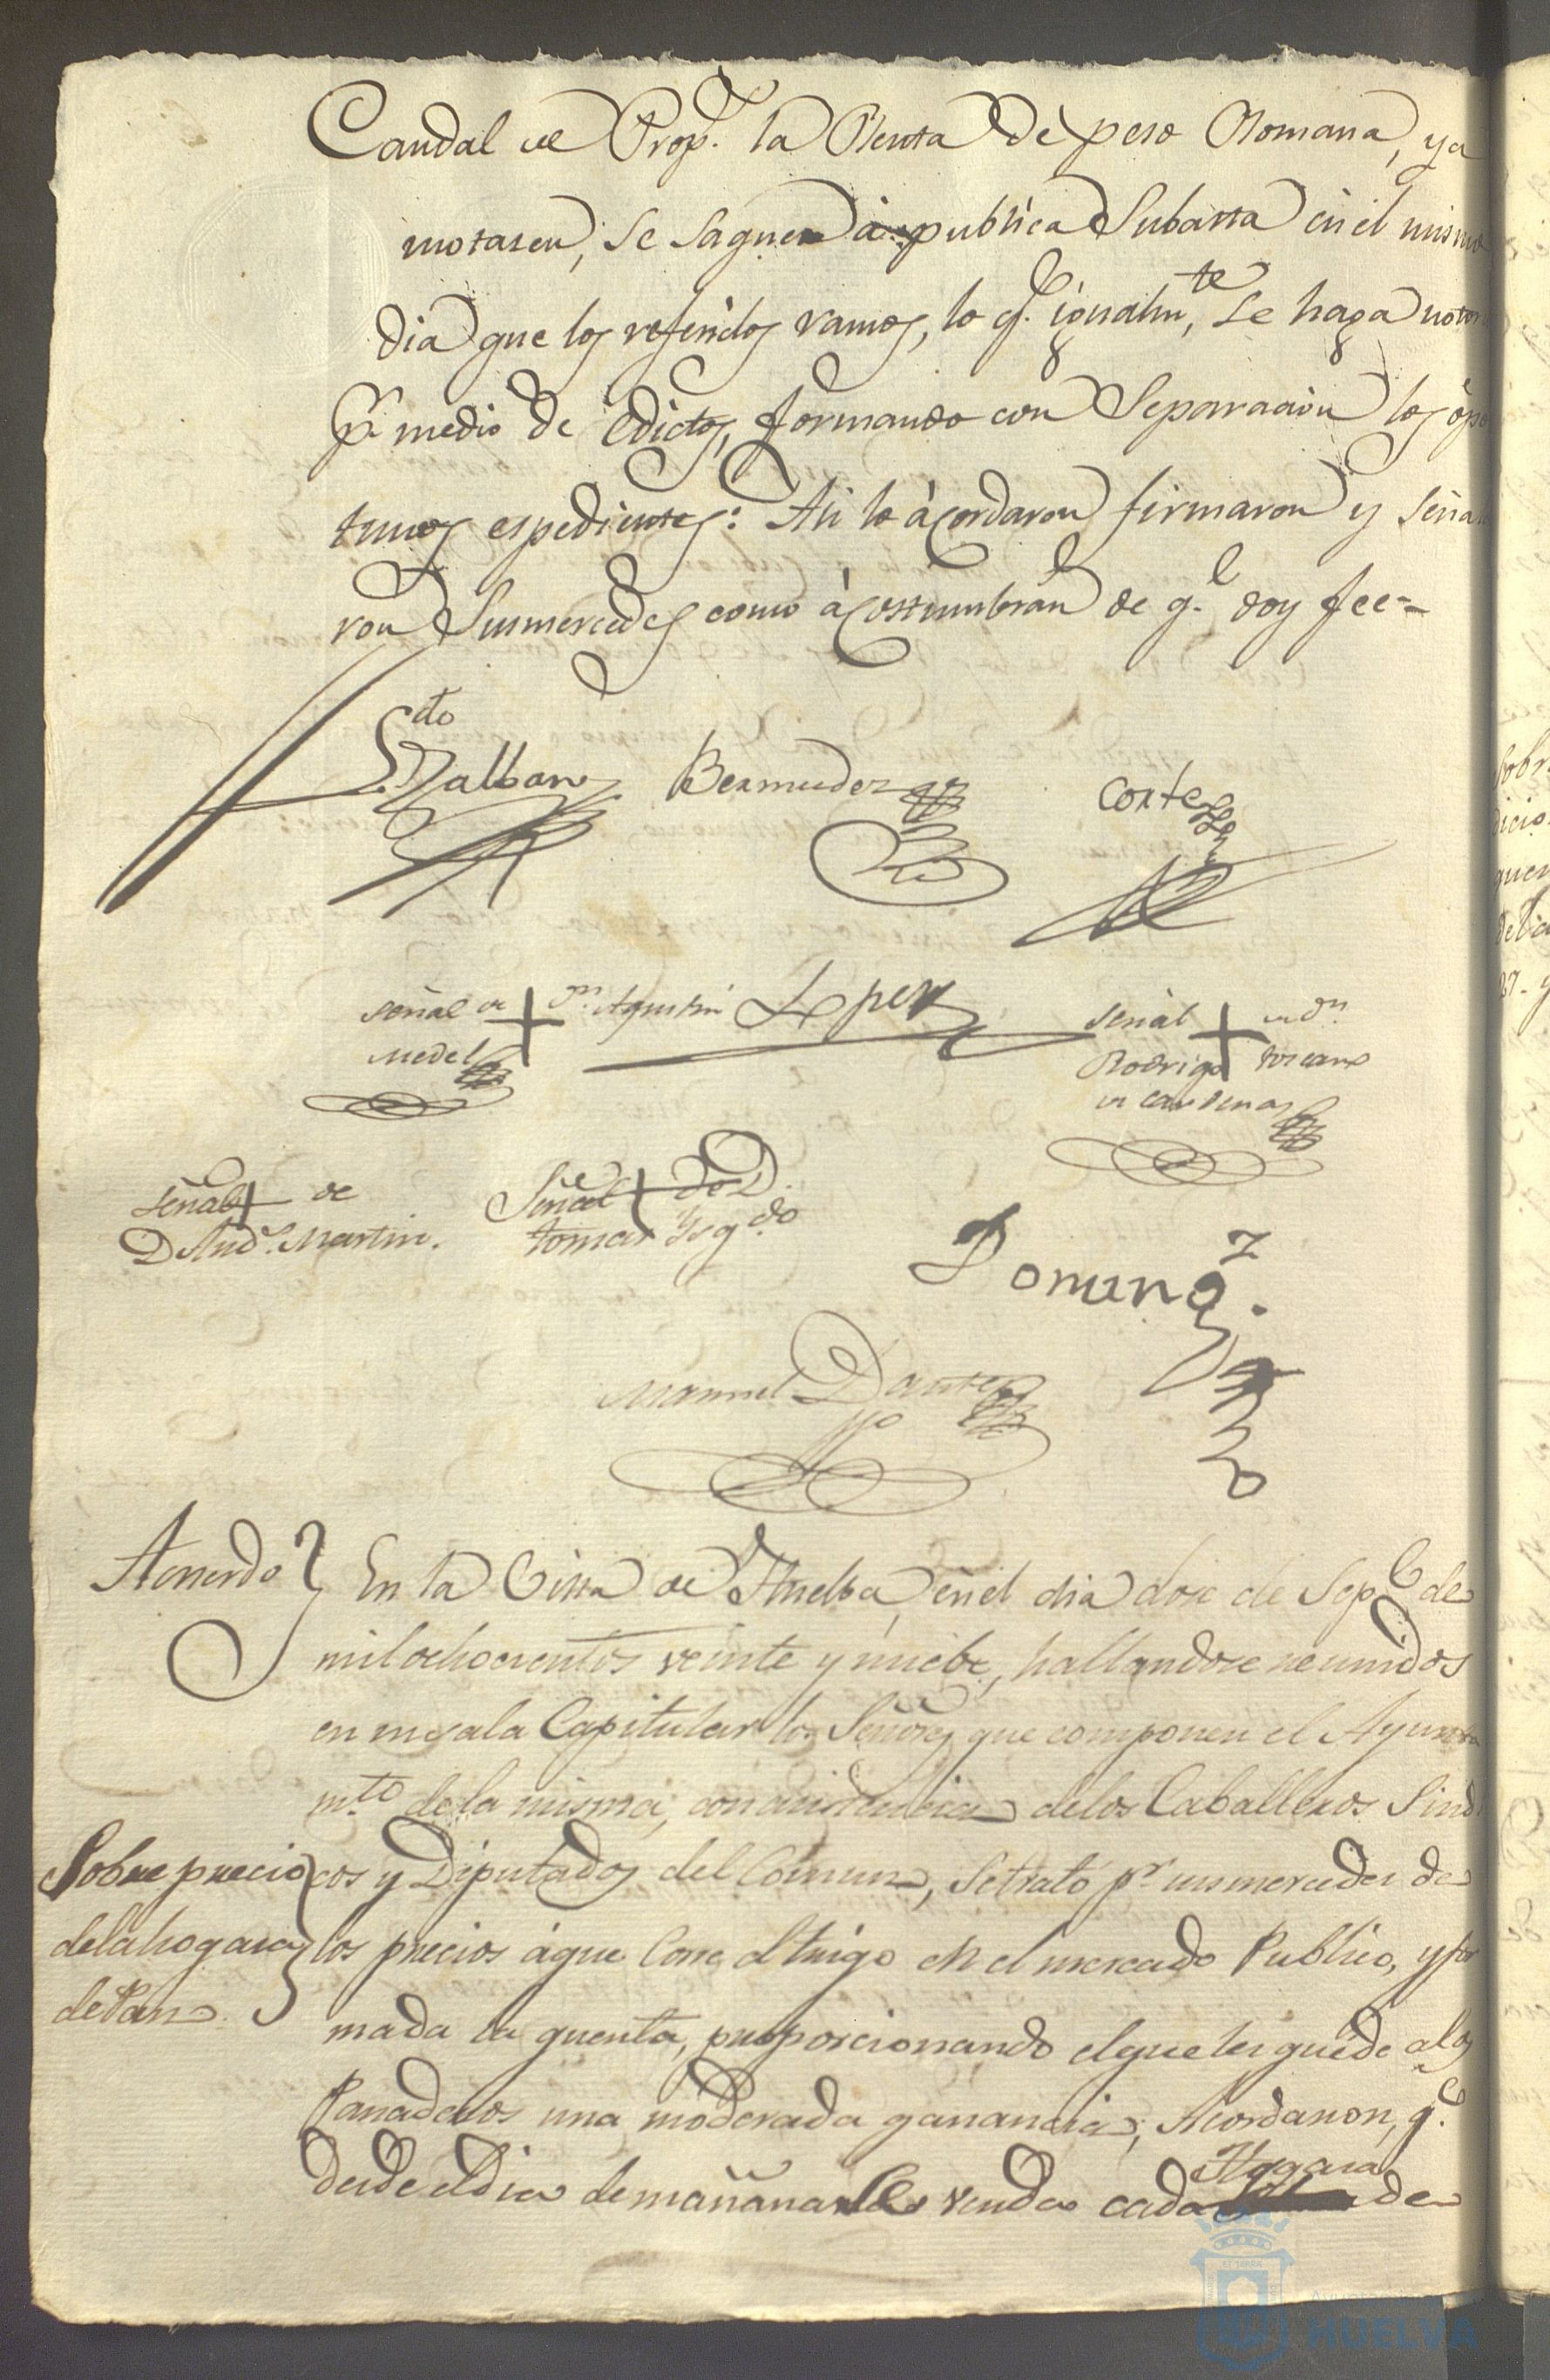 Caudal de Prop.s la Renta de peso Romana, y a
motacen, se saquen à publica Subasta en el mismo
dia que los referidos ramos, lo q.e igualm.te se haga notor
p.r medio de edictos, formando con Separacion los opor
tunos espedientes: Asi lo àcordaron firmaron y Seña
ron Susmercedes como àcostumbran de q.e doy fee=
Bermudez
Cortes
señal de + Dn. Agustin
Medel
Lopez
señal + de dn.
Rodrigo toscano
de cardenas
señal + de
D And.s Martin.
Señal + de D.
tomas Ysq.do
Doming.z
Manuel Dantes
Acuerdo
En la Villa de Huelba, en el dia doce de Sep.e de
mil ochocientos veinte y nuebe, hallandose reunidos
en su sala Capitular los Señores que componen el Ayunta
m.to de la misma, con asistencia de los Caballeros Sindi
Sobre precio
de la hogaza
de Pan
cos y Diputados del Comun, se trató p.r susmercedes de
los precios á que Corre el trigo en el mercado Publico, y for
mada la quenta, proporcionando el que les quede a los
Panaderos una moderada ganancia; Acordaron, q.e
desde el dia de mañana se venda cada Hogaza de
HUELVA